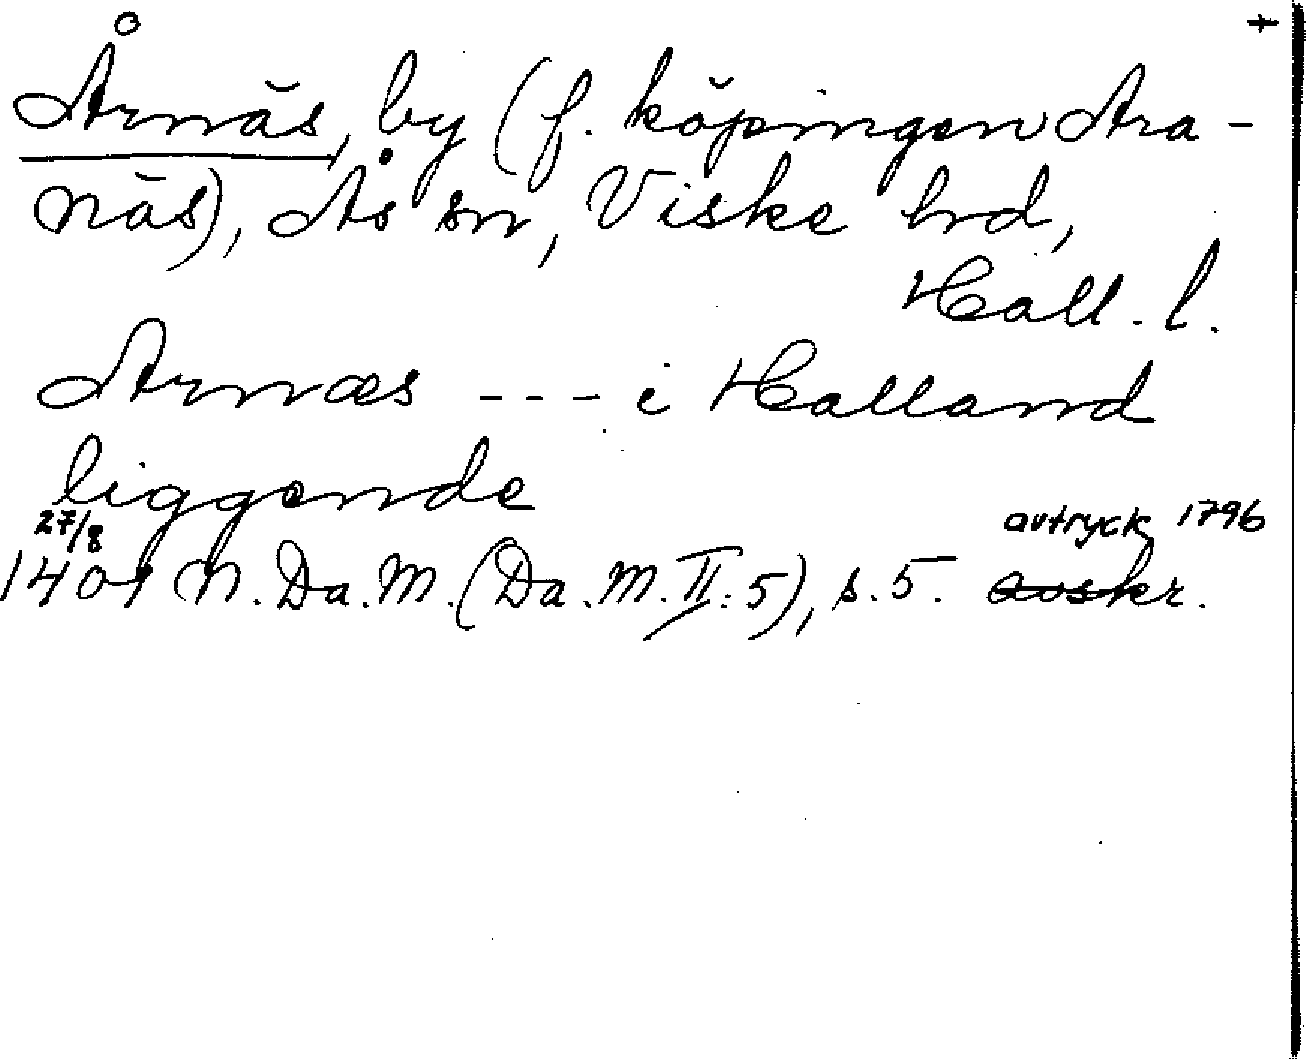 +
Årnäs, by (f. köpingen Ara-
näs), Ås sn, Viske hrd,
Hall. l.
Arnæs --- i Halland
liggende
27/8 avtryck 1796
1401 N. Da. M. (Da. M. II. 5), s. 5. avskr.